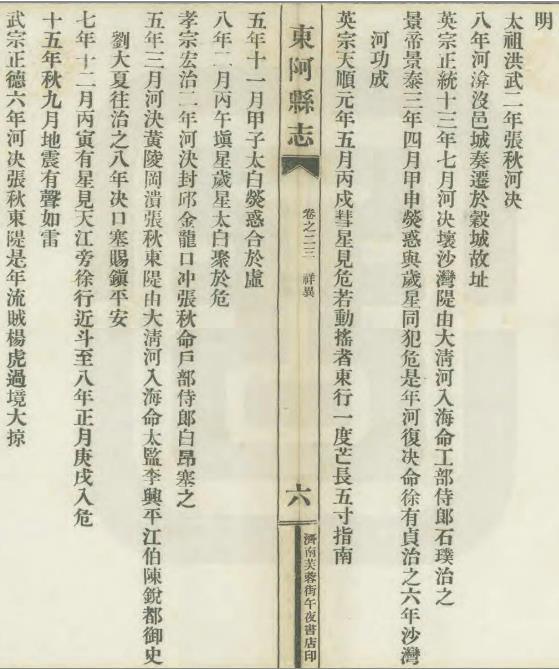 明
太祖洪武二年張秋河决
八年河渰沒邑城奏遷於穀城故址
英宗正統十三年七月河决壞沙灣隄由大清河入海命工部侍郎石璞治之
景帝景泰三年四月甲申熒惑與歲星同犯危是年河復决命徐有貞治之六年沙灣
河功成
英宗天順元年五月丙戍彗星見危若動搖者東行一度芒長五寸指南
東阿縣志
卷之二三 祥異
六
濟南芙蓉街午夜書店印
五年十一月甲子太白熒惑合於虛
八年二月丙午塡星歲星太白聚於危
孝宗宏治二年河決封邱金龍口冲張秋命戶部侍郎白昂塞之
五年三月河決黃陵岡潰張秋東隄由大淸河入海命太監李興平江伯陳銳都御史
劉大夏往治之八年决口塞賜鎭平安
七年十二月丙寅有星見天江旁徐行近斗至八年正月庚戌入危
十五年秋九月地震有聲如雷
武宗正德六年河决張秋東隄是年流賊楊虎過境大掠